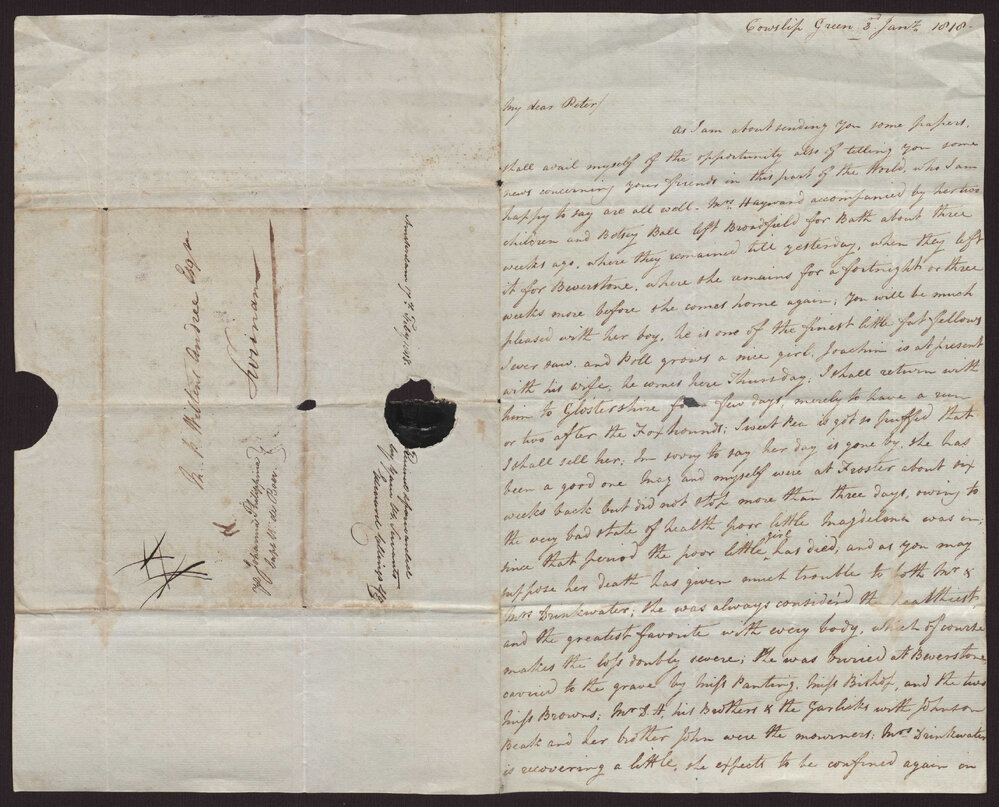 Cowslip Green 3rd Jany. 1818
My dear Peter/
As I am about sending you some papers,
shall avail myself of the opportunity also of telling you some
news concerning your friends in this part of the World, who I am
happy to say are all well. Mrs. Hayward accompanied by her two
children and Betsy Ball left Broadfield for Bath about three
weeks ago, where they remained till yesterday, when they left
it for Beverstone, where she remains for a fortnight or three
weeks more before she comes home again; You will be much
pleased with her boy, he is one of the finest little fat fellows
I ever saw, and Poll grows a nice girl. Joachim is at present
with his wife, he comes here Thursday; I shall return with
him to Glostershire for a few days, merely to have a run
or two after the Foxhounds; Sweet Pea is got so stuffed that
I shall sell her; Im sorry to say her day is gone by, she has
been a good one Mag and myself were at Froster about six
weeks back but did not stop more than three days, owing to
the very bad state of health poor little Magdelena was in;
since that period the poor little girl has died, and as you may
suppose her death has given much trouble to both Mr. &
Mrs Drinkwater; she was always consider'd the healthiest,
and the greatest favorite with every body, which of course
makes the loss doubly severe; She was buried at Beverstone,
carried to the grave by Miss Panting, Miss Bishop, and the two
Miss Browns; Mr D. H, his Brothers & the Garlicks with Johnson
Beak and her brother John were the mourners; Mrs Drinkwater
is recovering a little, she expects to be confined again in
M. P. Wiltens Andree Esqre
Surinam
pr Johanna Josephina
Capt. H. de Boer
Amsterdam 17th Feby. 1818
Received & forwarded
by your ob. servants